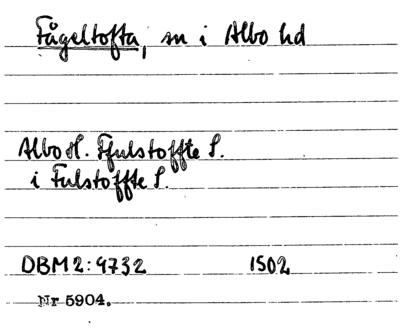 Fågeltofta, sn i Albo hd
Albo H. Ffulstoffte S.
i Fulstoffte S.
DBM2:9732 1502
Nr 5904.